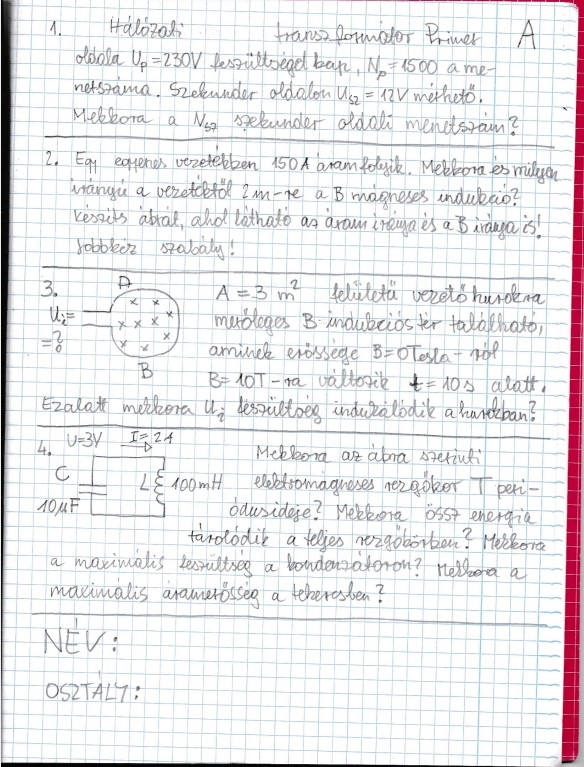 1. Hálózati transzformátor Primer A
oldala Up = 230V feszültséget kap, Np = 1500 a me-
netszáma. Szekunder oldalon Usz = 12V mérhető.
Mekkora a Nsz szekunder oldali menetszám?
2. Egy egyenes vezetékben 150A áram folyik. Mekkora és milyen
irányú a vezetéktől 2m-re a B mágneses indukció?
Készíts ábrát, ahol látható az áram iránya és a B iránya is!
Jobbkéz szabály!
3. A A = 3 m² felületű vezető hurokra
Ui = merőleges B-indukciós tér található,
=? aminek erőssége B = 0Tesla-ról
B B = 10T-ra változik t = 10s alatt.
Ezalatt mekkora Ui feszültség indukálódik a hurokban?
4. U=3V I=2A Mekkora az ábra szerinti
C L 100mH elektromágneses rezgőkör T peri-
10µF ódusideje? Mekkora össz energia
tárolódik a teljes rezgőkörben? Mekkora
a maximális feszültség a kondenzátoron? Mekkora a
maximális áramerősség a tekercsben?
NÉV:
OSZTÁLY: